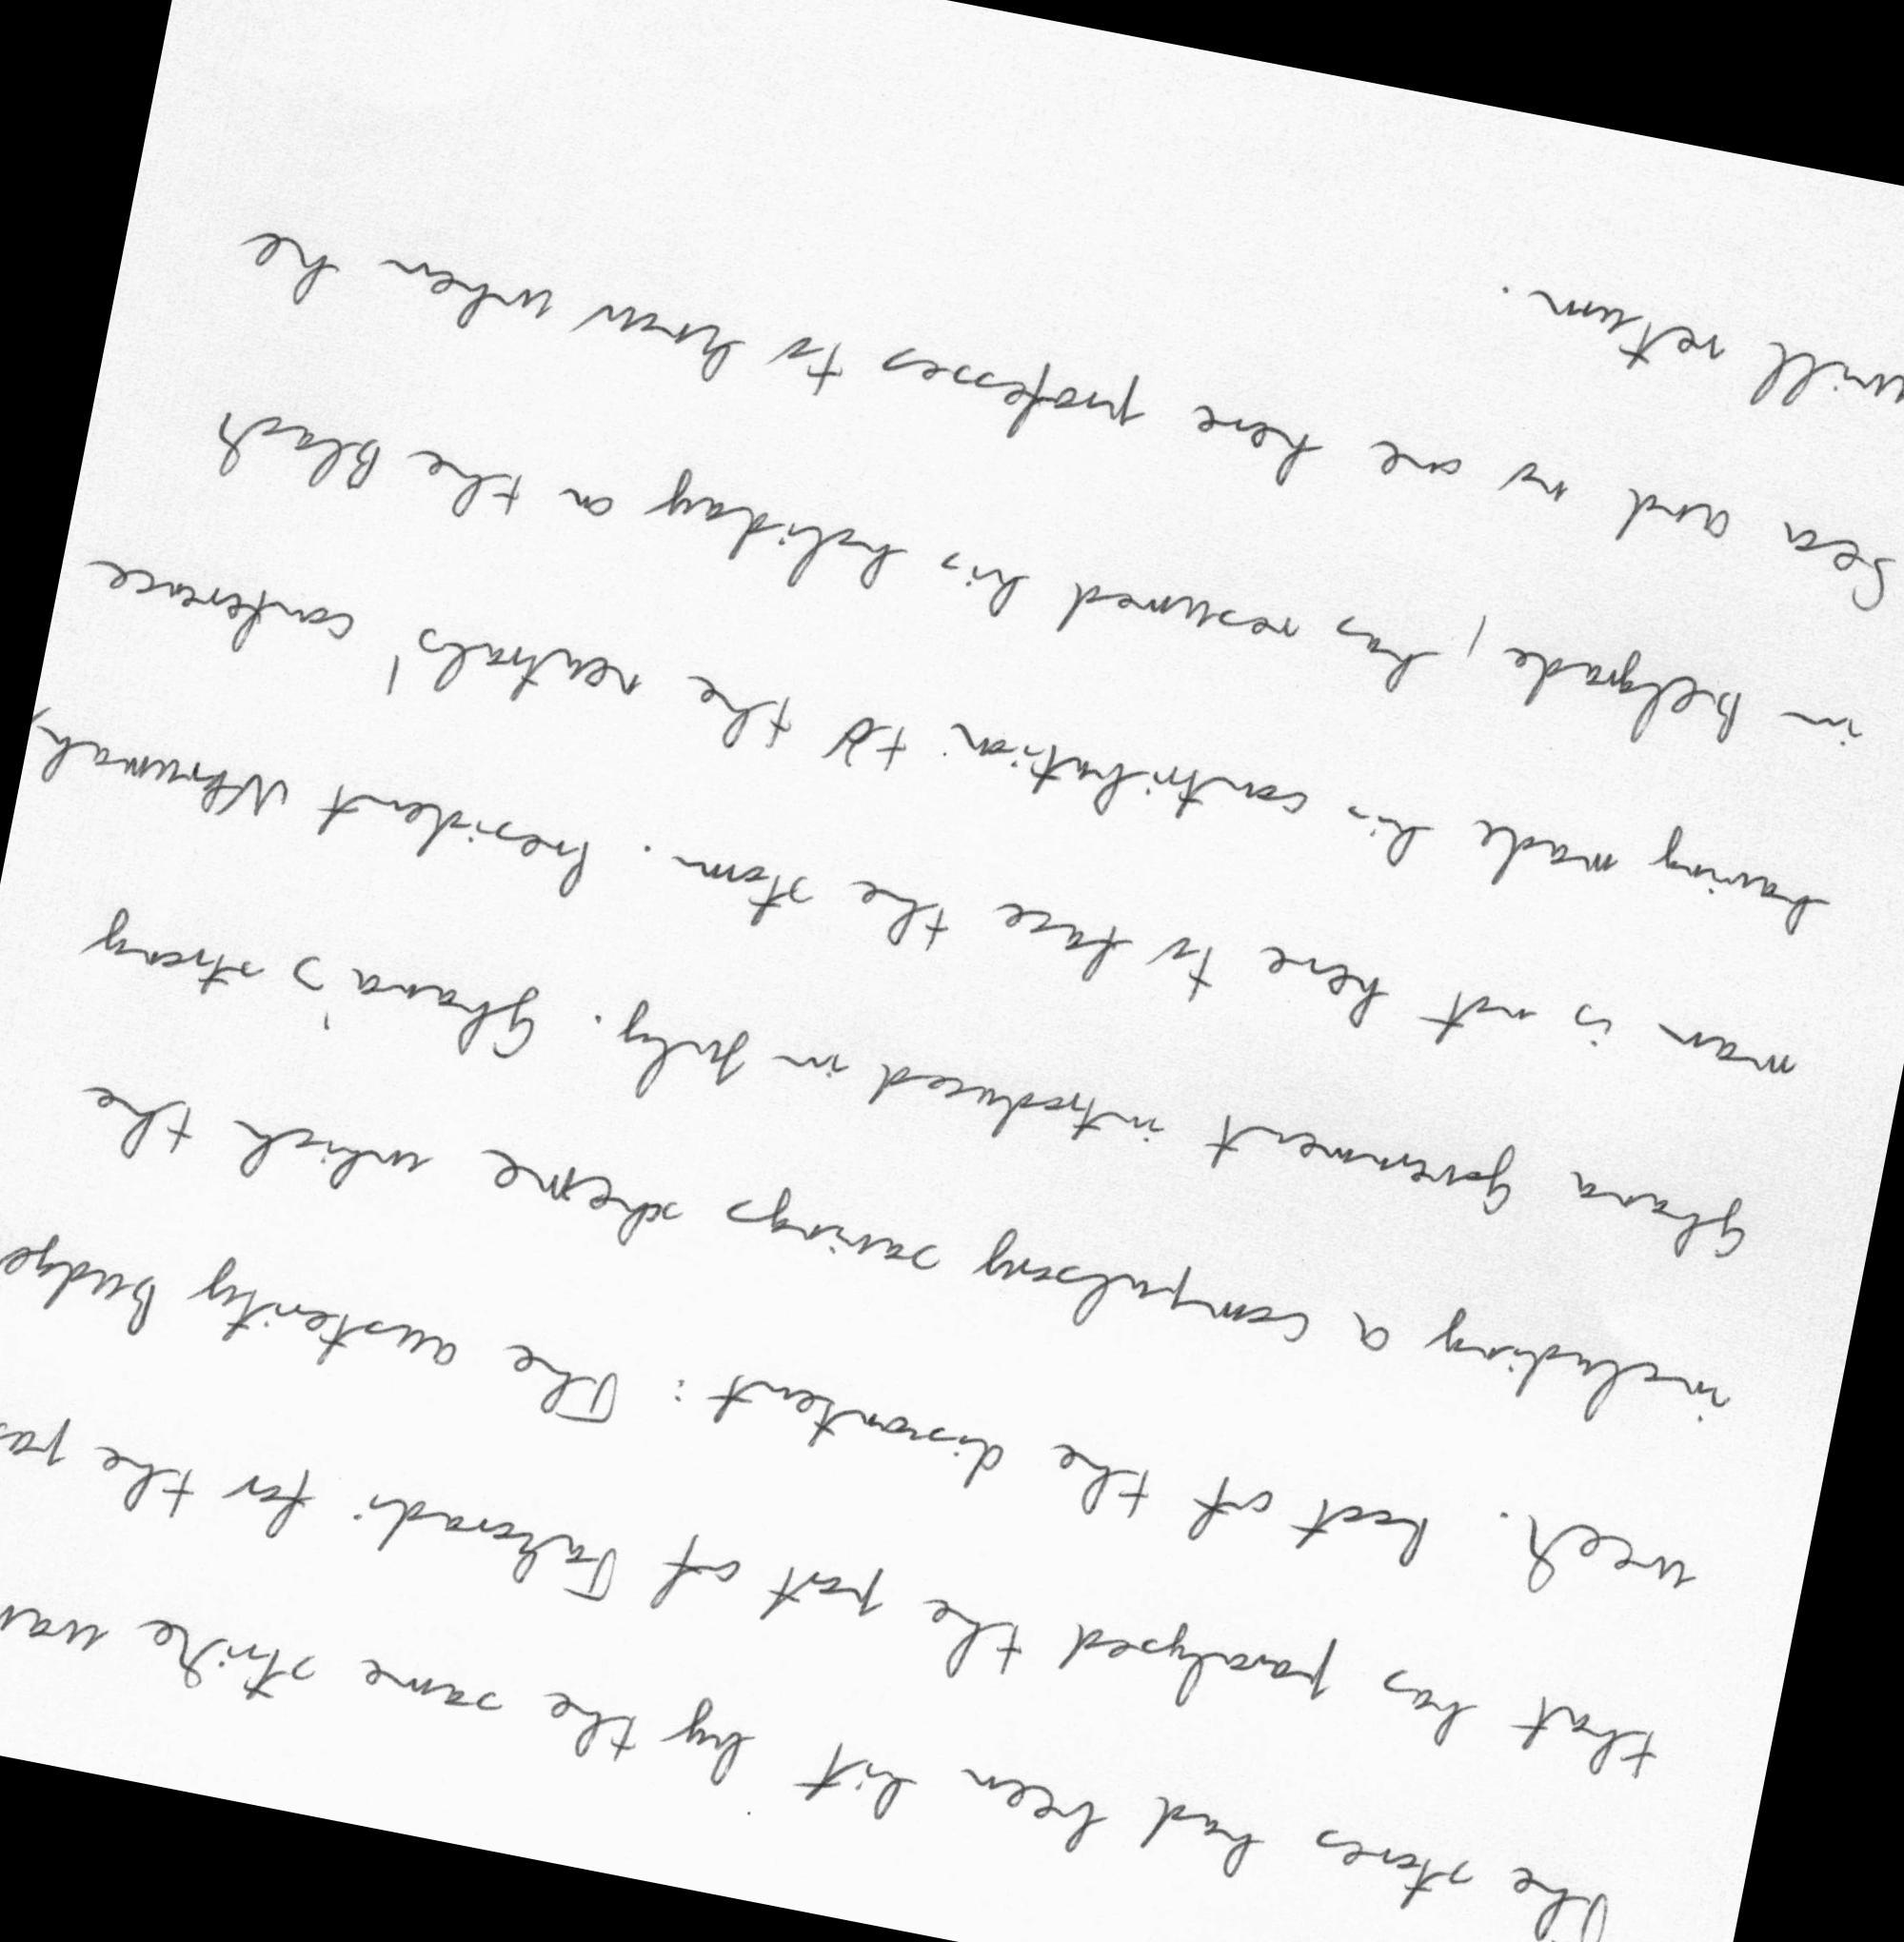 The stores had been hit by the same strike wav
that has paralysed the port of Takoradi for the pas
week. Root of the discontent: The austerity Budge
including a compulsory savings scheme which the
Ghana Government introduced in July. Ghana's strong
man is not here to face the storm. President Nkrumah,
having made his contribution to the neutrals' conference
in Belgrade, has resumed his holiday on the Black
Sea and no one here professes to know when he
will return.